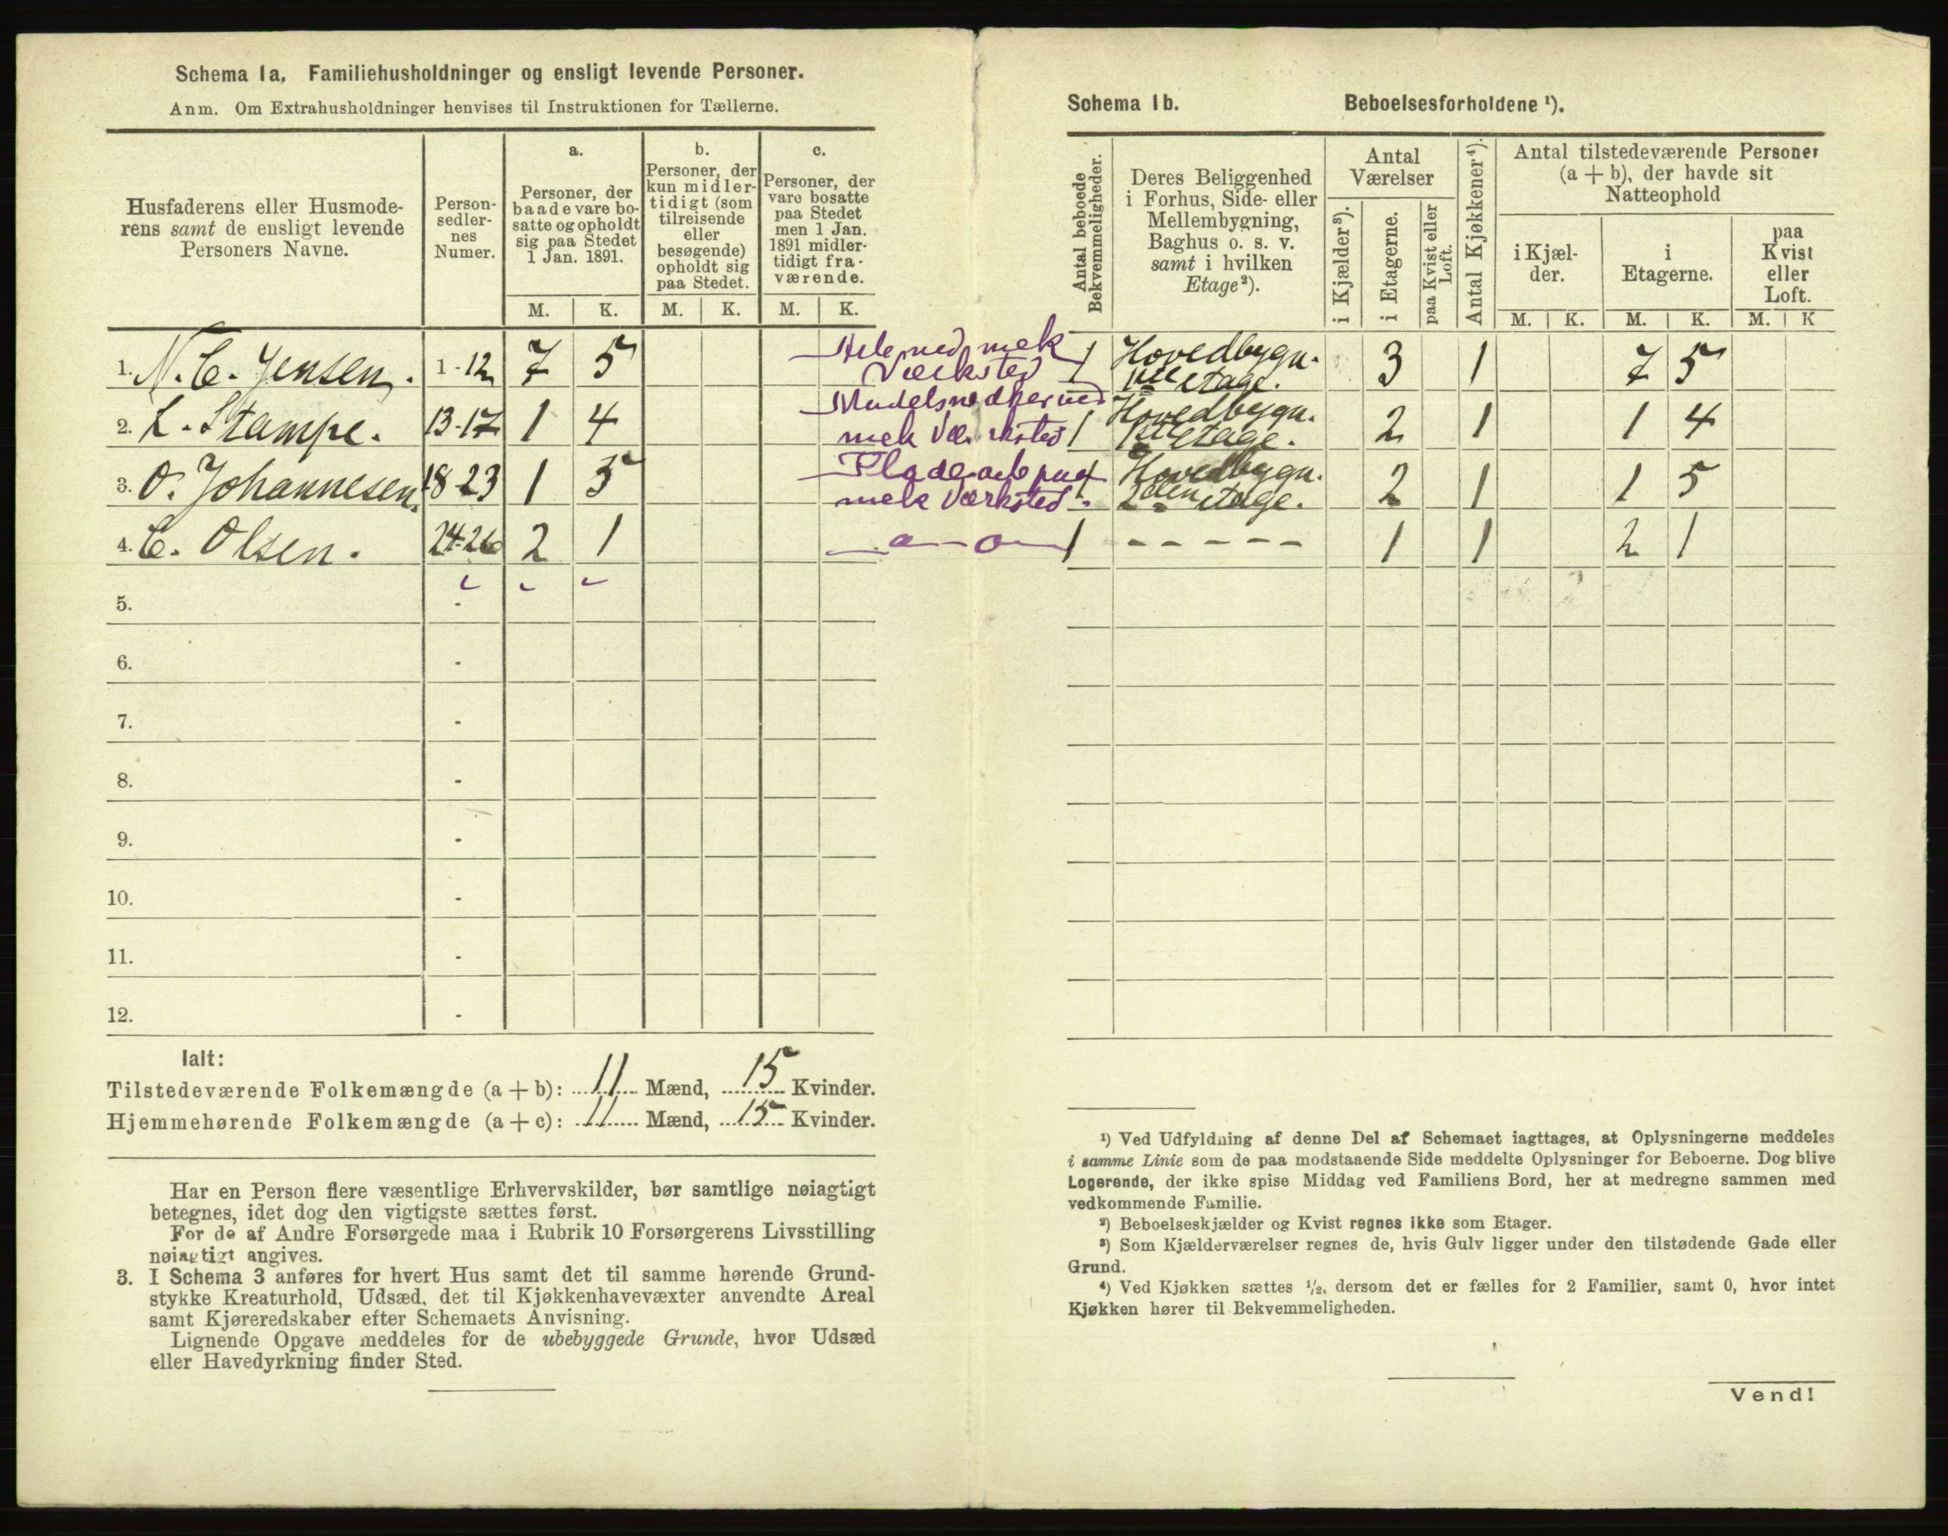 Schema 1a, Familiehusholdninger og ensligt levende Personer.
Anm. Om Extrahusholdninger henvises til Instruktionen for Tællerne.
Husfaderens eller Husmode-
rens samt de ensligt levende
Personers Navne.
Person-
sedler-
nes
Numer.
a.
Personer, der
baade vare bo-
satte og opholdt
sig paa Stedet
1 Jan. 1891.
b.
Personer, der
kun midler-
tidigt (som
tilreisende
eller
besøgende)
opholdt sig
paa Stedet.
c.
Personer, der
vare bosatte
paa Stedet
men 1 Jan.
1891 midler-
tidigt fra-
værende.
M. K. M. K. M. K.
1. N. C. Jensen. 1-12 7 5
2. L. Stampe. 13-17 1 4
3. O. Johannesen. 18-23 1 5
4. C. Olsen. 24-26 2 1
5. -
6. -
7. -
8. -
9. -
10. -
11. -
12. -
Ialt:
Tilstedeværende Folkemængde (a + b): 11 Mænd, 15 Kvinder.
Hjemmehørende Folkemængde (a + c): 11 Mænd, 15 Kvinder.
Har en Person flere væsentlige Erhvervskilder, bør samtlige nøiagtigt
betegnes, idet dog den vigtigste sættes først.
For de af Andre Forsørgede maa i Rubrik 10 Forsørgerens Livsstilling
nøiagtigt angives.
3. I Schema 3 anføres for hvert Hus samt det til samme hørende Grund-
stykke Kreaturhold, Udsæd, det til Kjøkkenhavevæxter anvendte Areal
samt Kjøreredskaber efter Schemaets Anvisning.
Lignende Opgave meddeles for de ubebyggede Grunde, hvor Udsæd
eller Havedyrkning finder Sted.
Schema 1b. Beboelsesforholdene ¹).
Antal beboede
Bekvemmeligheder.
Deres Beliggenhed
i Forhus, Side- eller
Mellembygning,
Baghus o. s. v.
samt i hvilken
Etage²).
Antal
Værelser
i Kjælder³).
i Etagerne.
paa Kvist eller
Loft.
Antal Kjøkkener⁴).
Antal tilstedeværende Personer
(a + b), der havde sit
Natteophold
i Kjæl-
der.
i
Etagerne.
paa
Kvist
eller
Loft.
M. K. M. K. M. K
mek
Værksted 1 Hovedbygn.
1ste etage. 3 1 7 5
mek Værksted 1 Hovedbygn.
1ste etage. 2 1 1 4
mek Værksted. 1 Hovedbygn.
2den etage. 2 1 1 5
— o — o — 1 - - - - - 1 1 2 1
¹) Ved Udfyldning af denne Del af Schemaet iagttages, at Oplysningerne meddeles
i samme Linie som de paa modstaaende Side meddelte Oplysninger for Beboerne. Dog blive
Logerende, der ikke spise Middag ved Familiens Bord, her at medregne sammen med
vedkommende Familie.
²) Beboelseskjælder og Kvist regnes ikke som Etager.
³) Som Kjælderværelser regnes de, hvis Gulv ligger under den tilstødende Gade eller
Grund.
⁴) Ved Kjøkken sættes ¹/₂, dersom det er fælles for 2 Familier, samt 0, hvor intet
Kjøkken hører til Bekvemmeligheden.
Vend!